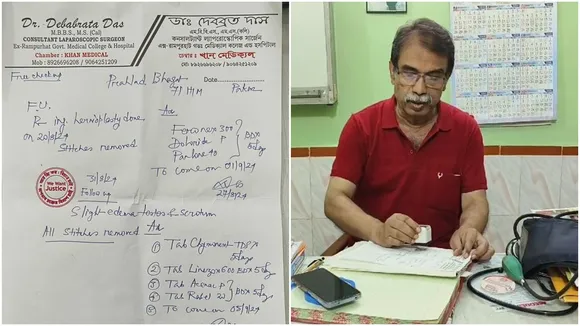 Dr. Debabrata Das
M.B.B.S., M.S. (Cal)
CONSULTANT LAPAROSCOPIC SURGEON
Ex-Rampurhat Govt. Medical College & Hospital
Chamber : KHAN MEDICAL
Mob : 8926696208 / 9064251209
ডাঃ দেবব্রত দাস
এম.বি.বি.এস., এম.এস. (কলি)
কনসালট্যান্ট ল্যাপারোস্কোপিক সার্জেন
এক্স-রামপুরহাট গভঃ মেডিক্যাল কলেজ এন্ড হসপিটাল
চেম্বার : খান মেডিক্যাল
Free checking
Prahlad Bhagat
Date
71 H/M
Pakur
F.U.
hernioplasty done
on 20/8/24
Stitches removed
Adv
300
P
40
BD x
5 days
To come on 01/9/24
27/8/24
We Want
Justice
31/8/24
Follow up
Slight edema testes & scrotum
All Stitches removed
Adv
① Tab TDS x 5 days
② Tab 600 BD x 5 days
③ Tab P
④ Tab 20
BD x
5 days
⑤ To come on 05/9/24